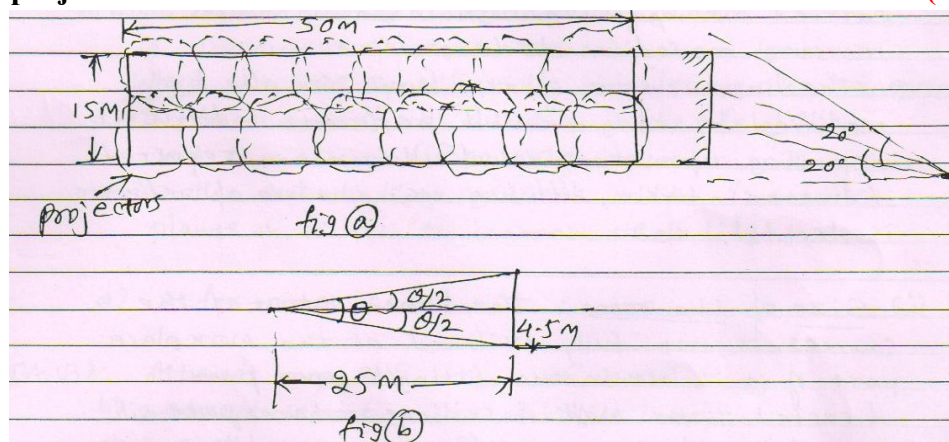 50M
15M
20°
20°
projectors
fig (a)
θ/2
θ
θ/2
4.5M
25M
fig(b)